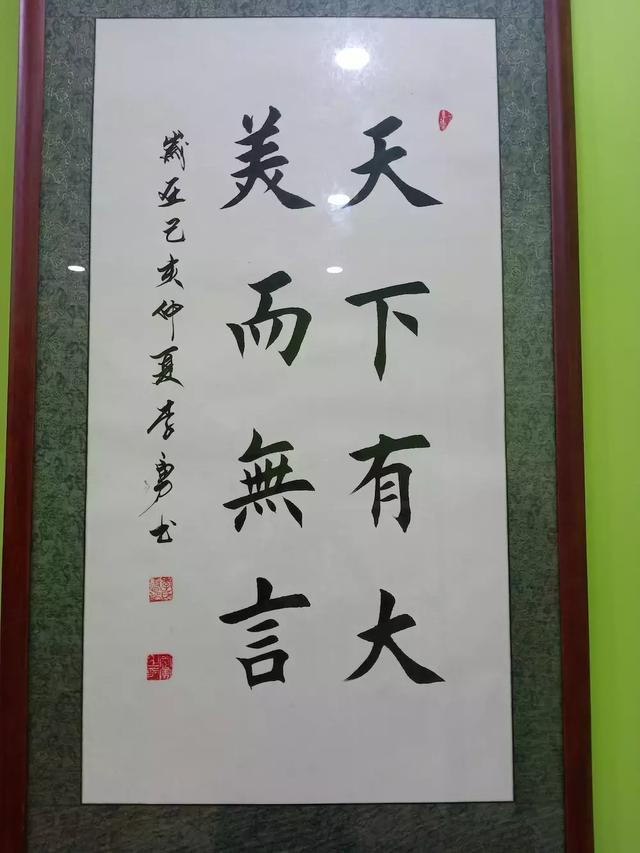 天下有大
美而無言
歲在己亥仲夏李勇书